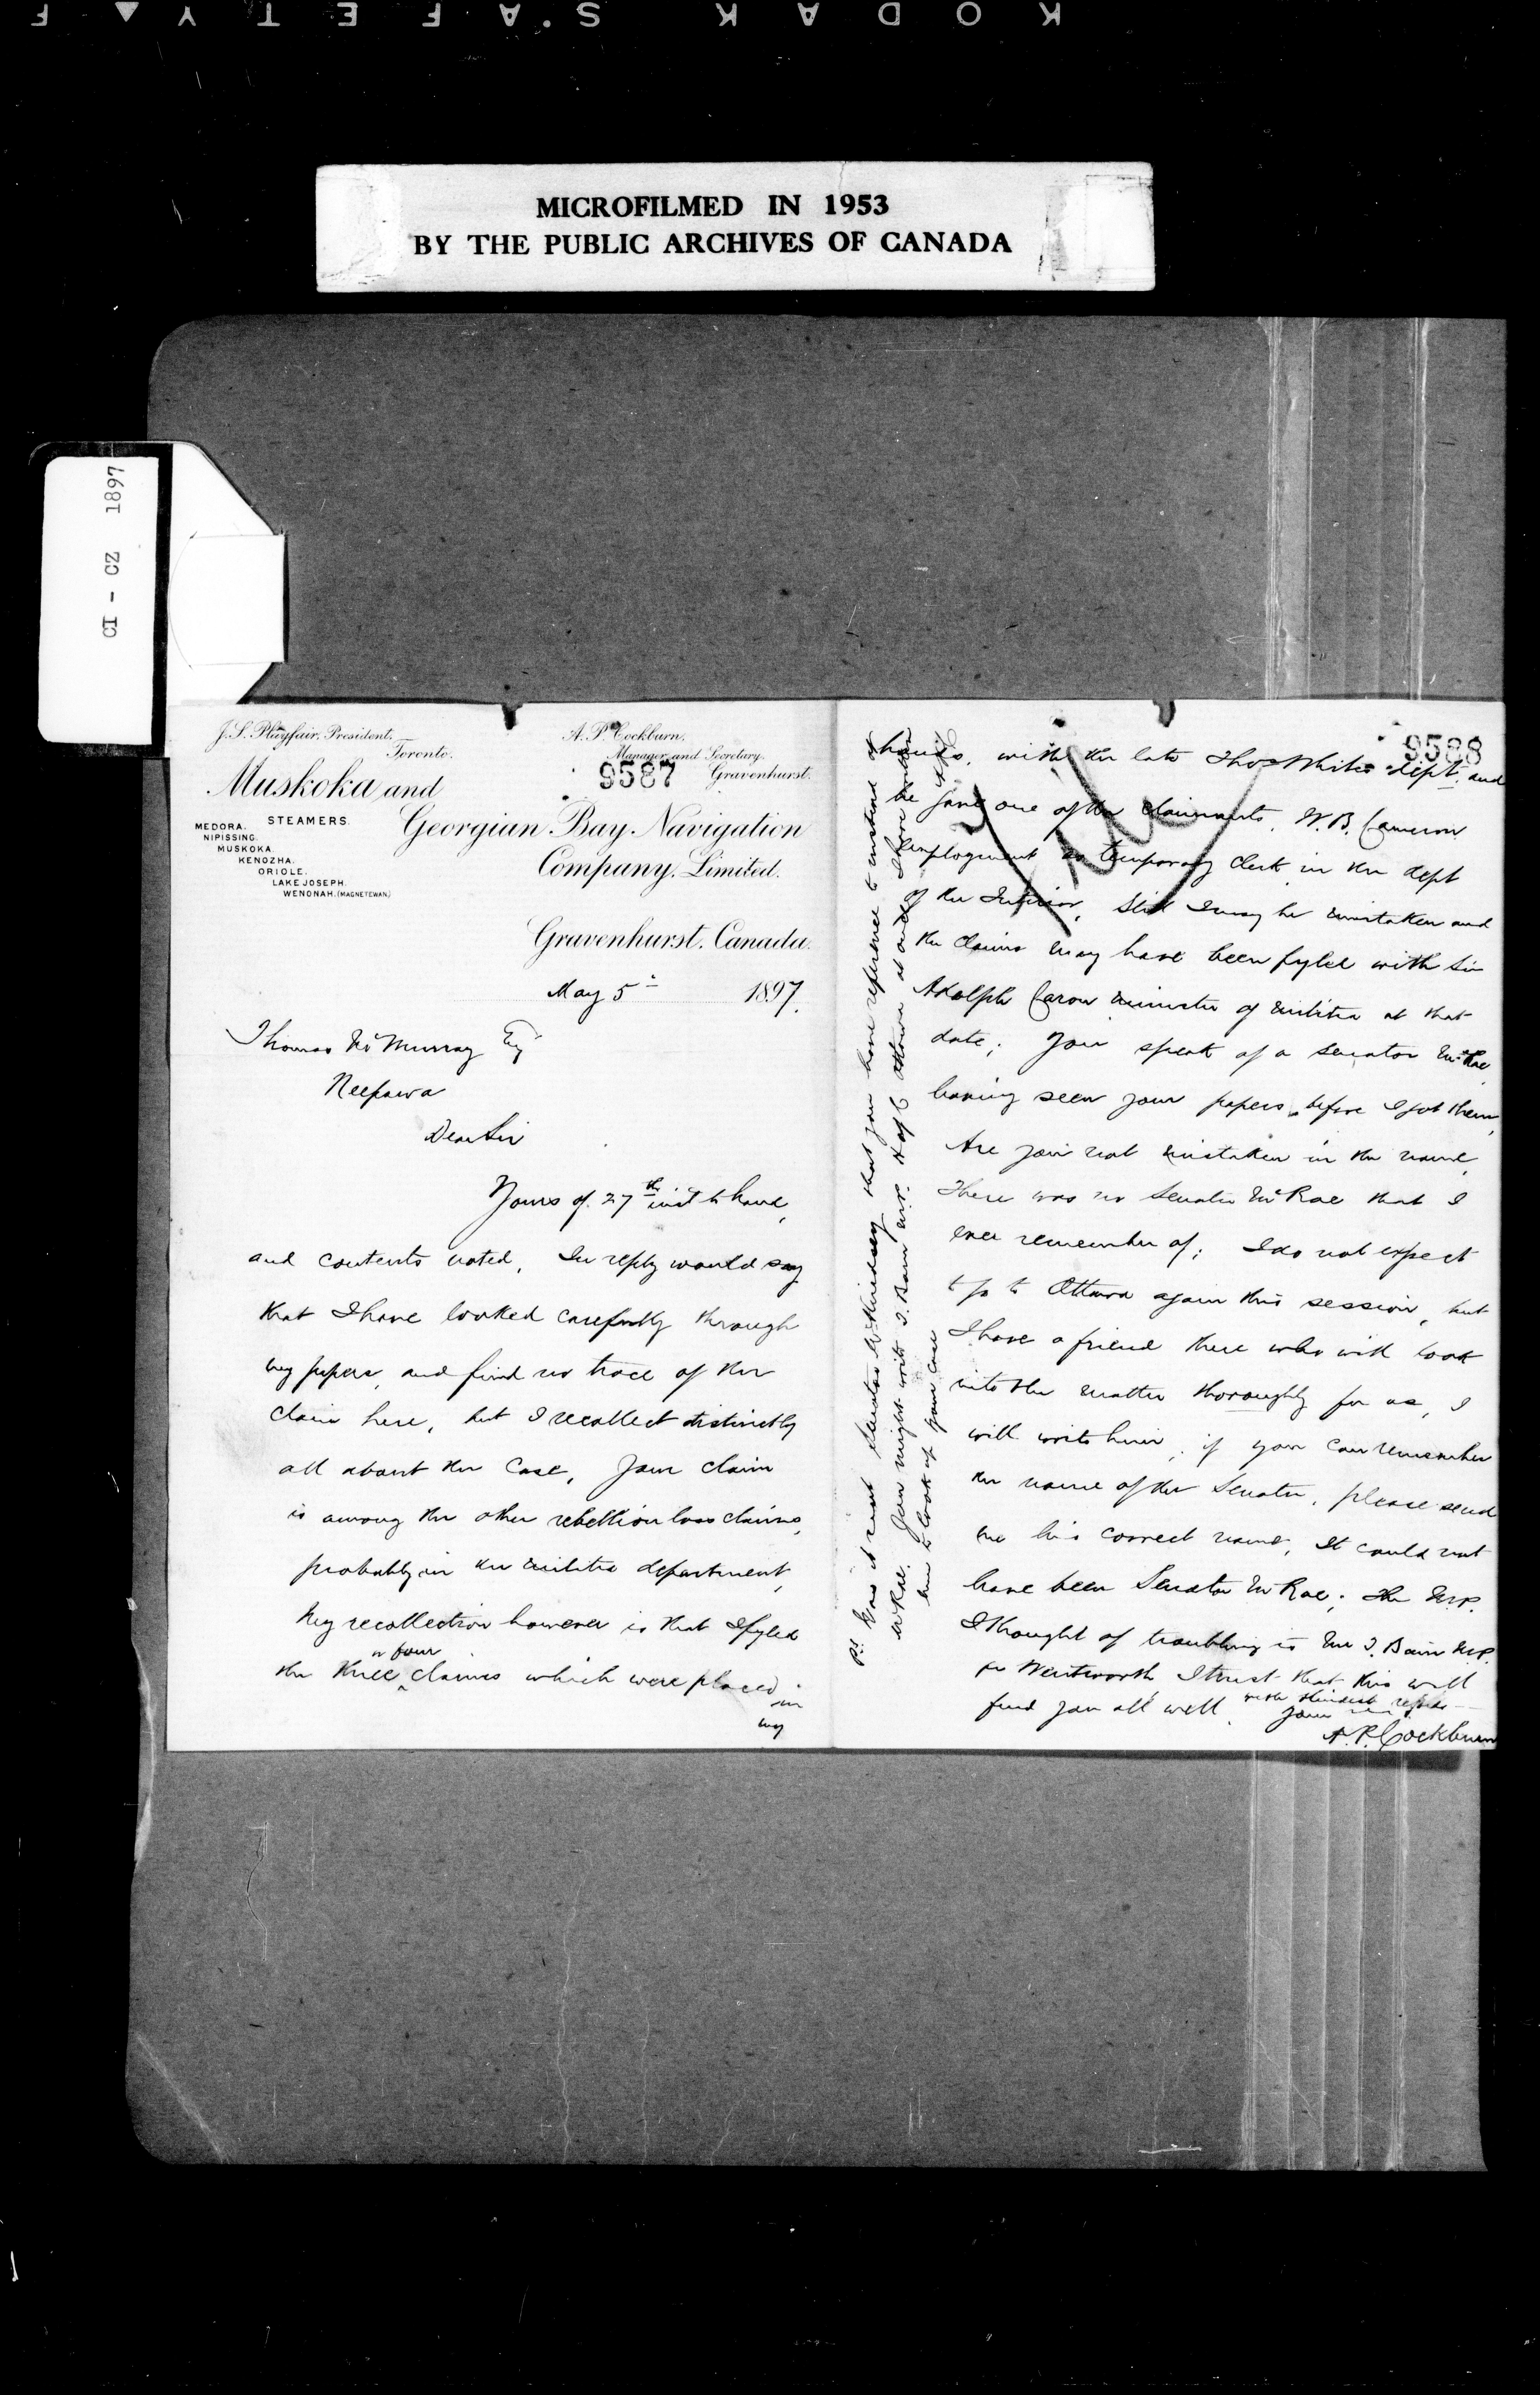 KODAK S.AFETY F
MICROFILMED IN 1953
BY THE PUBLIC ARCHIVES OF CANADA
CI - CZ 1897
J. S. Playfair, President,
Toronto.
A. P. Cockburn,
Manager and Secretary,
Gravenhurst.
9587
Muskoka and
Georgian Bay Navigation
Company, Limited.
STEAMERS.
MEDORA.
NIPISSING.
MUSKOKA.
KENOZHA.
ORIOLE.
LAKE JOSEPH.
WENONAH. (MAGNETEWAN)
Gravenhurst, Canada.
May 5th 1897.
Thomas McMurray Esq
Neepawa
Dear Sir
Yours of 27th inst to hand,
and contents noted, In reply would say
that I have looked carefully through
my papers, and find no trace of the
claim here, but I recollect distinctly
all about the case, Your claim
is among the other rebellion loss claims,
probably in the militia department,
My recollection however is that I fyled
the three or four claims which were placed in
my
9588
hands, with the late Thos White's dept. and
he gave one of the claimants, W. B. Cameron
employment as temporary clerk in the dept
of the Interior, Still I may be mistaken and
the claims may have been fyled with Sir
Adolph Caron minister of militia at that
date; You speak of a Senator McRae
having seen your papers before I got them,
Are you not mistaken in the name,
There was no Senator McRae that I
ever remember of; I do not expect
to go to Ottawa again this session, but
I have a friend there who will look
into the matter thoroughly for us, I
will write him, if you can remember
the name of the Senator, please send
me his correct name, It could not
have been Senator McRae; The M.P.
I thought of troubling is Mr T. Bain M.P.
for Wentworth I trust that this will
find you all well, with kindest regards
Yours
A. P. Cockburn
P.S. Was it not Senator McKindsey that you have reference to instead of
McRae. You might write T. Bain M.P. H of C Ottawa at once I have written
him to look up your case